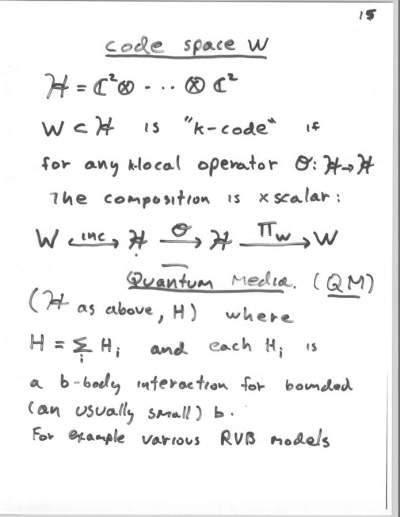 15
code space W
ℋ = ℂ²⊗ · · · ⊗ ℂ²
W ⊂ ℋ is "k-code" if
for any k-local operator 𝒪: ℋ→ℋ
The composition is x scalar:
W ↪inc→ ℋ —𝒪→ ℋ —Π_W→ W
Quantum Media. (QM)
(ℋ as above, H) where
H = Σ_i H_i and each H_i is
a b-body interaction for bounded
(an usually small) b.
For example various RVB models